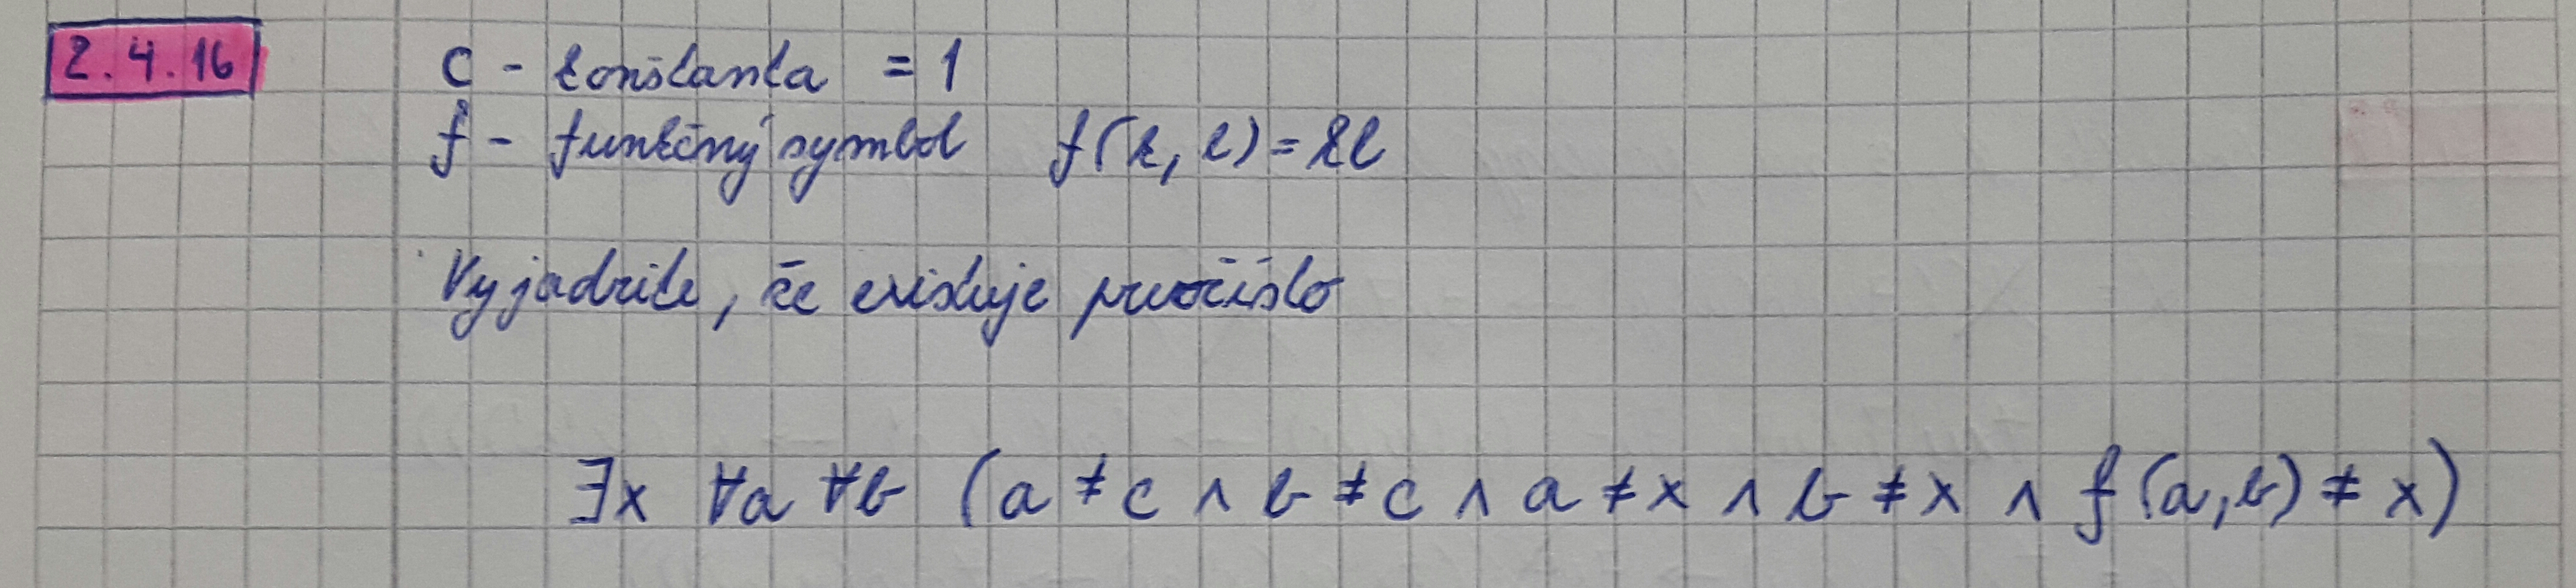 2.4.16 c - konštanta = 1
f - funkčný symbol f(k, l) = kl
Vyjadrite, že existuje prvočíslo
∃x ∀a ∀b (a ≠ c ∧ b ≠ c ∧ a ≠ x ∧ b ≠ x ∧ f(a,b) ≠ x)